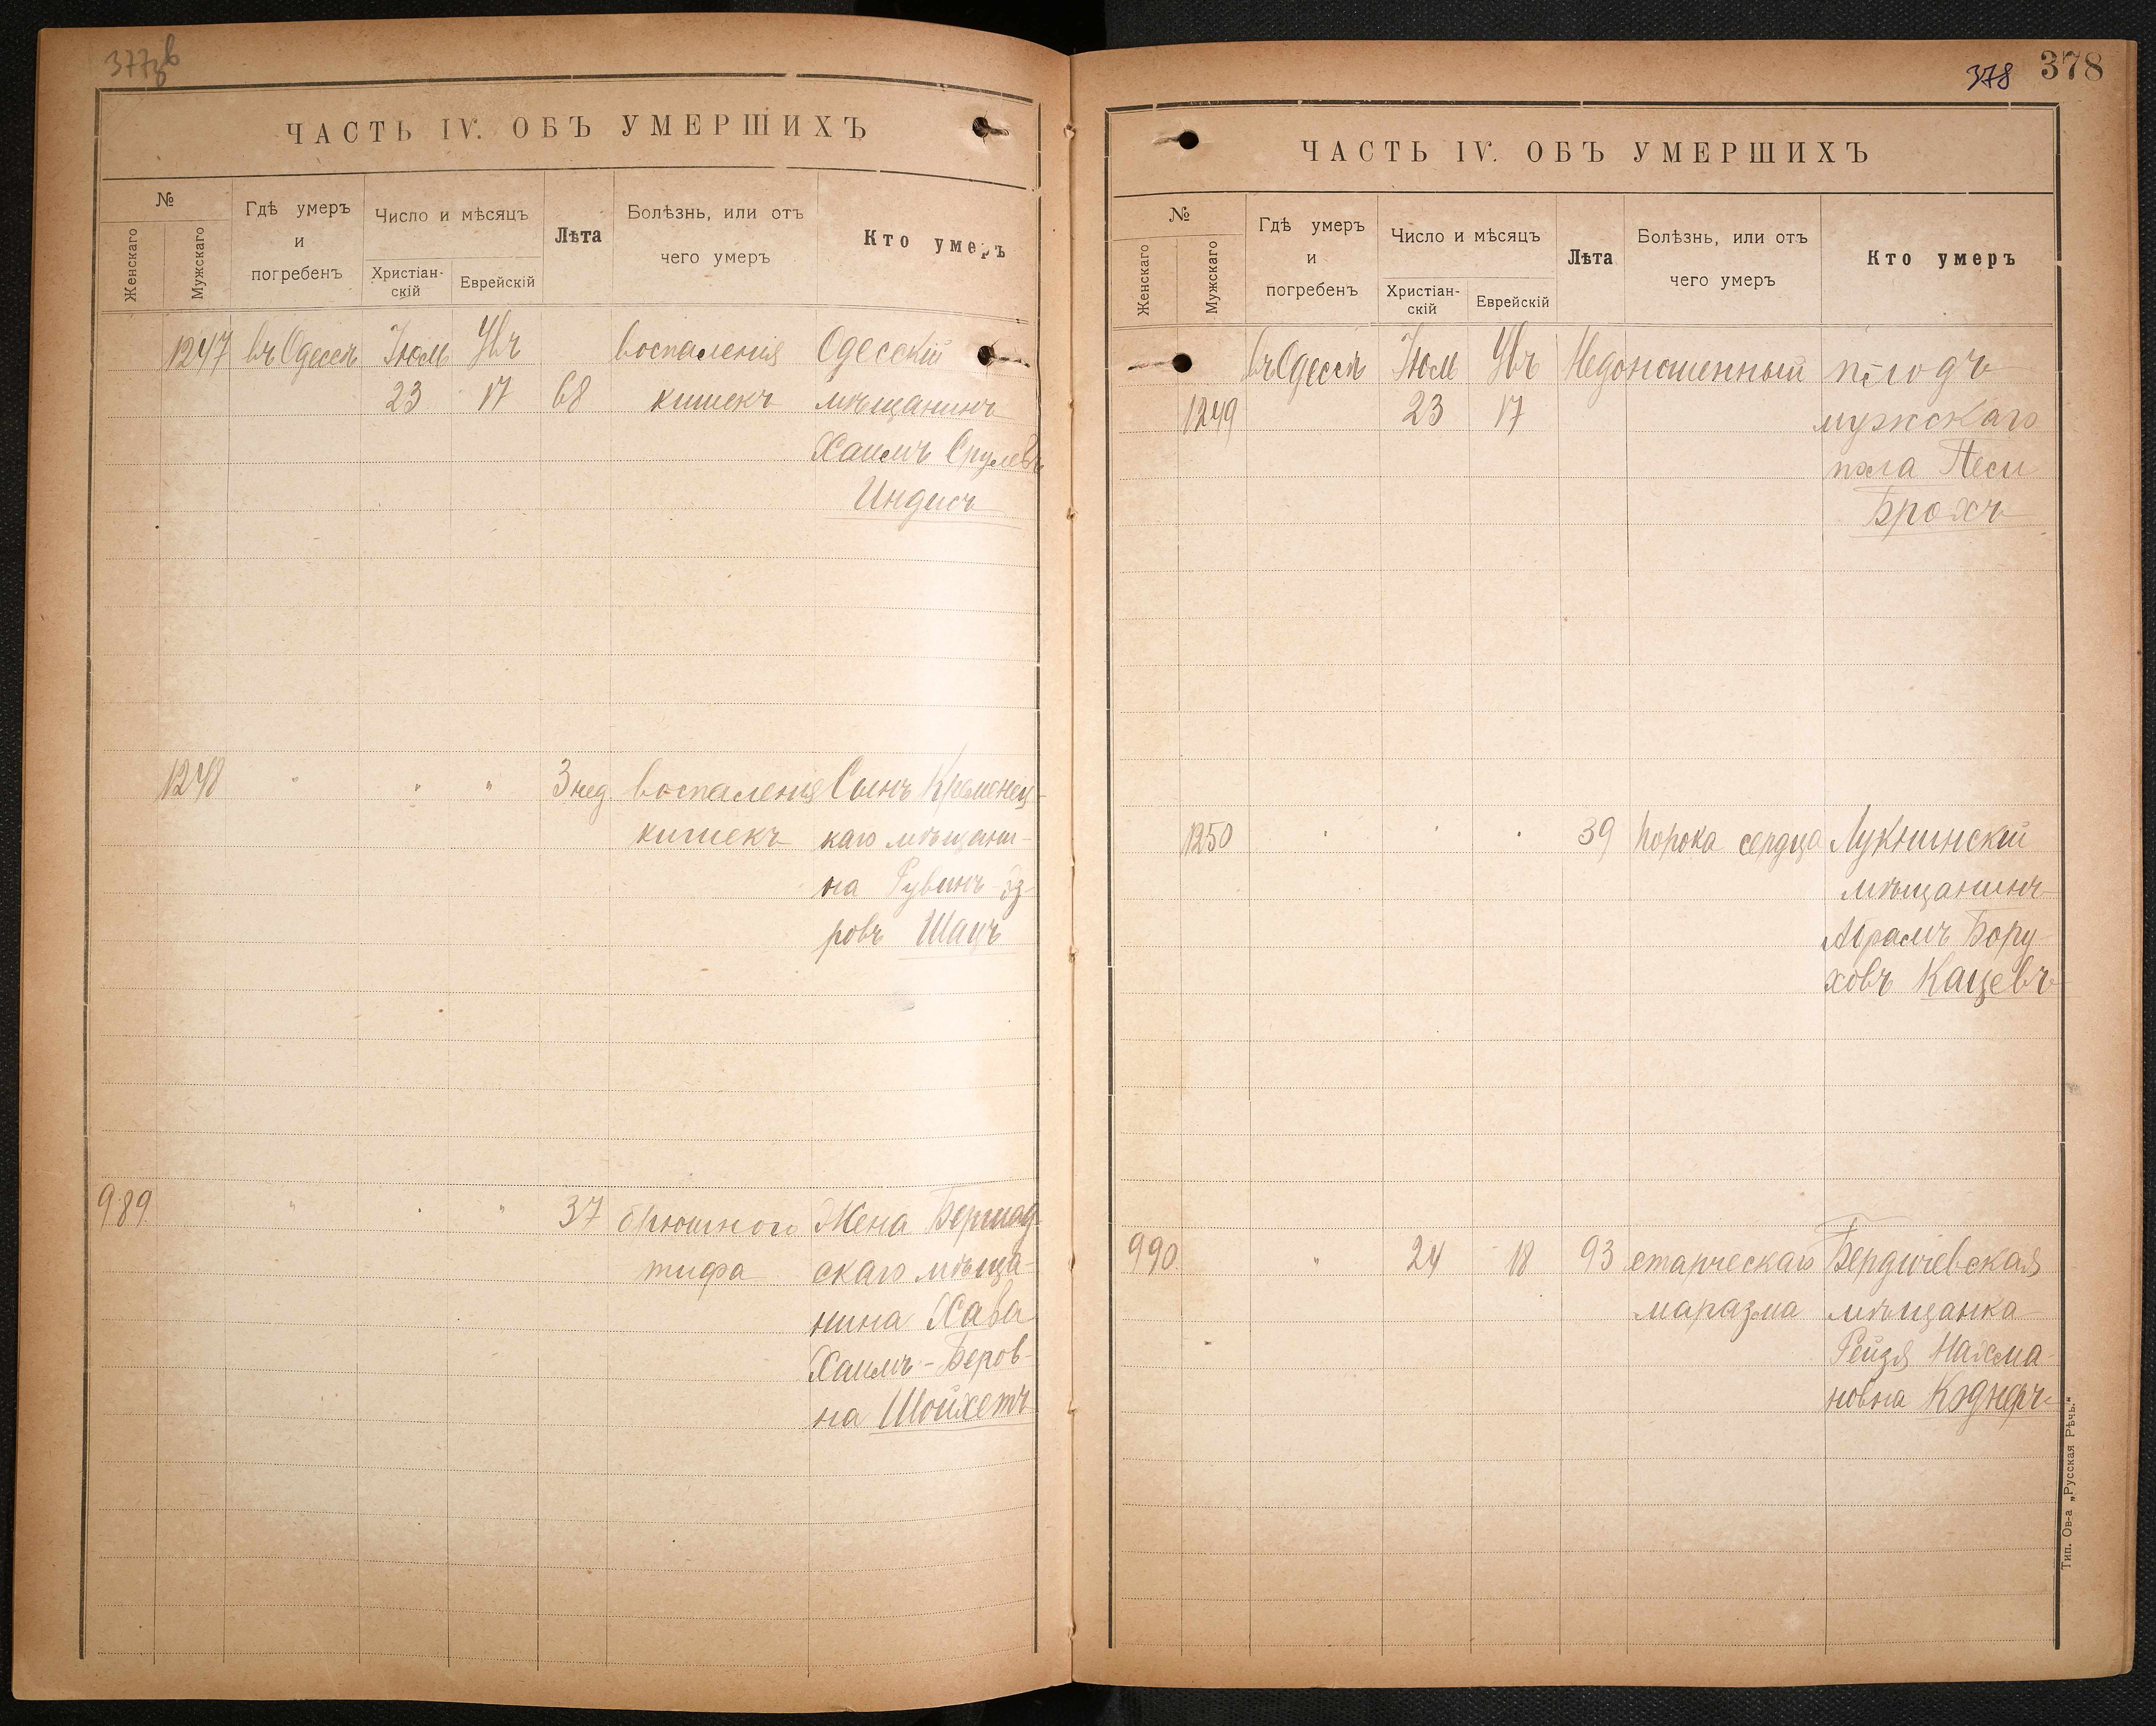 377об
ЧАСТЬ IV. ОБЪ УМЕРШИХЪ
№
Женскаго
Мужскаго
Гдѣ умеръ
и
погребенъ
Число и мѣсяцъ
Христіан-
скій
Еврейскій
Лѣта
Болѣзнь, или отъ
чего умеръ
Кто умеръ
1247 въ Одессѣ Іюль Увъ воспаленія Одесскій
23 17 68 кишекъ мѣщанинъ
Хаимъ Срулевъ
Индисъ
1248 " " " 3 нед. воспаленія Сынъ Кременец-
кишекъ каго мѣщани-
на Рувинъ-Эз-
ровъ Шацъ
989 " " " 37 брюшного Жена Бершад-
тифа скаго мѣща-
нина Хава
Хаимъ-Беров-
на Шойхетъ
378 378
ЧАСТЬ IV. ОБЪ УМЕРШИХЪ
№
Женскаго
Мужскаго
Гдѣ умеръ
и
погребенъ
Число и мѣсяцъ
Христіан-
скій
Еврейскій
Лѣта
Болѣзнь, или отъ
чего умеръ
Кто умеръ
въ Одессѣ Іюль Увъ Недоношенный плодъ
1249 23 17 мужскаго
пола Песи
Брохъ
1250 " " " 39 порока сердца Лукнинскій
мѣщанинъ
Абрамъ Бору-
ховъ Кацевъ
990 " 24 18 93 старческаго Бердичевская
маразма мѣщанка
Рейзя Нахма-
новна
Тип. Ов-а „Русская Рѣчь."